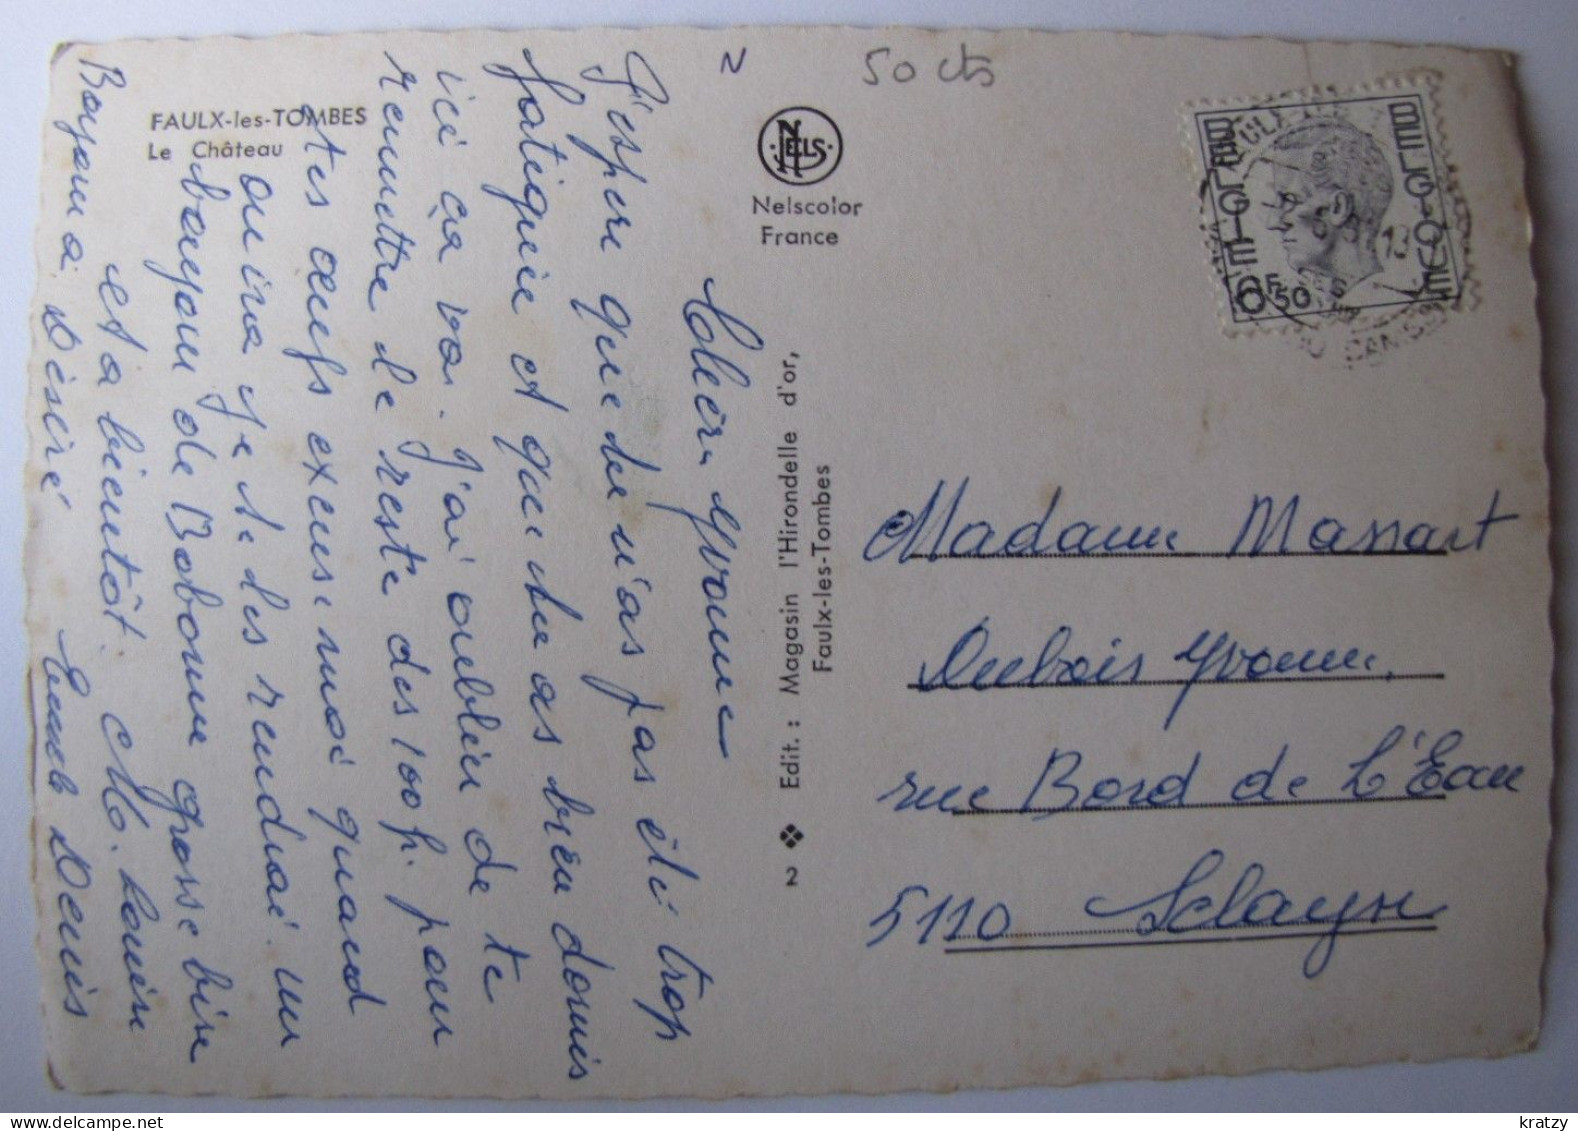 N
50 cts
FAULX-les-TOMBES
Le Château
NELS
Nelscolor
France
BELGIQUE
BELGIE
6F50
Edit. : Magasin l'Hirondelle d'or,
Faulx-les-Tombes
2
Chère Yvonne
J'espère que tu n'as pas été trop
fatiguée et que tu as bien dormis
ici ça va. J'ai oublier de te
remettre le reste des 100 f. pour
tes œufs excuse moi quand
on ira je te les rendrai. un
bonjour de Bobonne grosse bise
et a bientôt.
Bonjour à Désiré
Madame Massart
Dubois Yvonne
rue Bord de L'Eau
5110 Sclayn